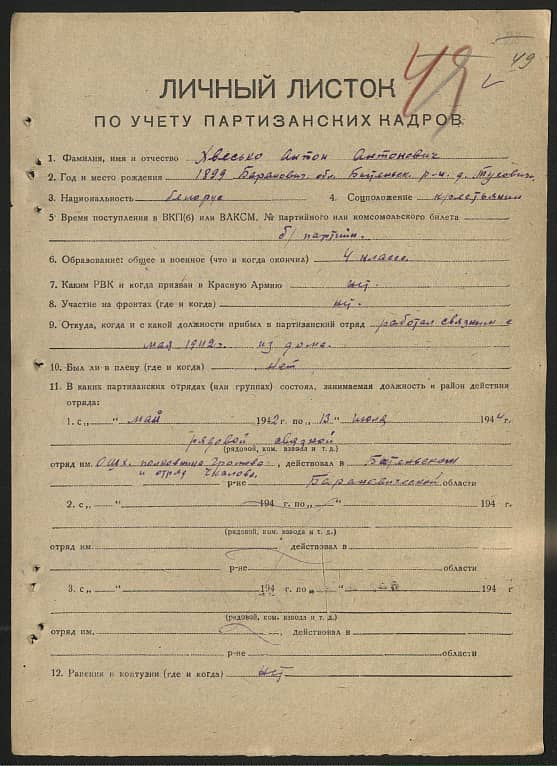 49
49
ЛИЧНЫЙ ЛИСТОК
ПО УЧЕТУ ПАРТИЗАНСКИХ КАДРОВ
1. Фамилия, имя и отчество Хвесько Антон Антонович
2. Год и место рождения 1899 Баранович. обл. р-н. д.
3. Национальность белорус 4. Соцположение крестьянин
5 Время поступления в ВКП(б) или ВЛКСМ, № партийного или комсомольского билета
б/партийн.
6. Образование: общее и военное (что и когда окончил) 4 класс.
7. Каким РВК и когда призван в Красную Армию нет.
8. Участие на фронтах (где и когда) нет.
9. Откуда, когда и с какой должности прибыл в партизанский отряд работал связным с
мая 1942 г. из дома.
10. Был ли в плену (где и когда) нет
11. В каких партизанских отрядах (или группах) состоял, занимаемая должность и район действия
отряда:
1. с „ “ май 1942 г по „ 13 “ июля 1944 г.
рядовой связной
(рядовой, ком. взвода и т. д.)
отряд им. полковника , действовал в
и отряд Чкалова. р-не Барановической области
2. с „ “ 194 г. по „ “ 194 г.
(рядовой, ком. взвода и т. д.)
отряд им. действовал в
р-не области
3. с „ “ 194 г. по „ “ 194 г
(рядовой, ком. взвода и т. д.)
отряд им. , действовал в
р-не области
12. Ранения и контузии (где и когда) нет